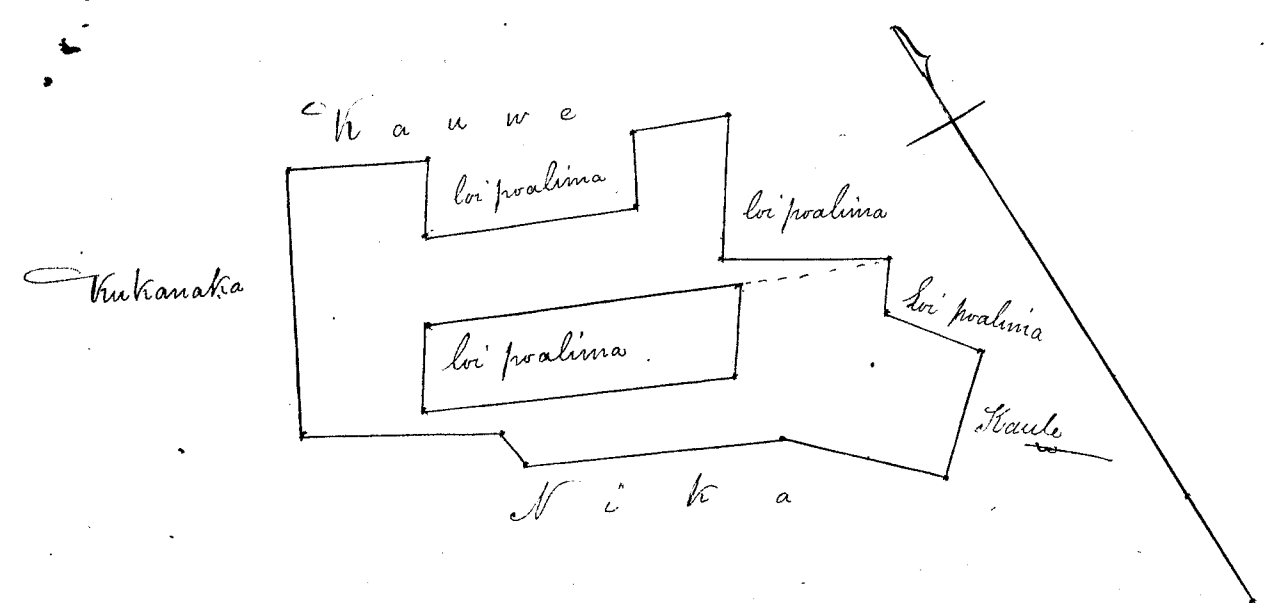 Kauwe
loi poalima
loi poalima
Kukanaka
Loi poalima
loi poalima
Kaule
Nika